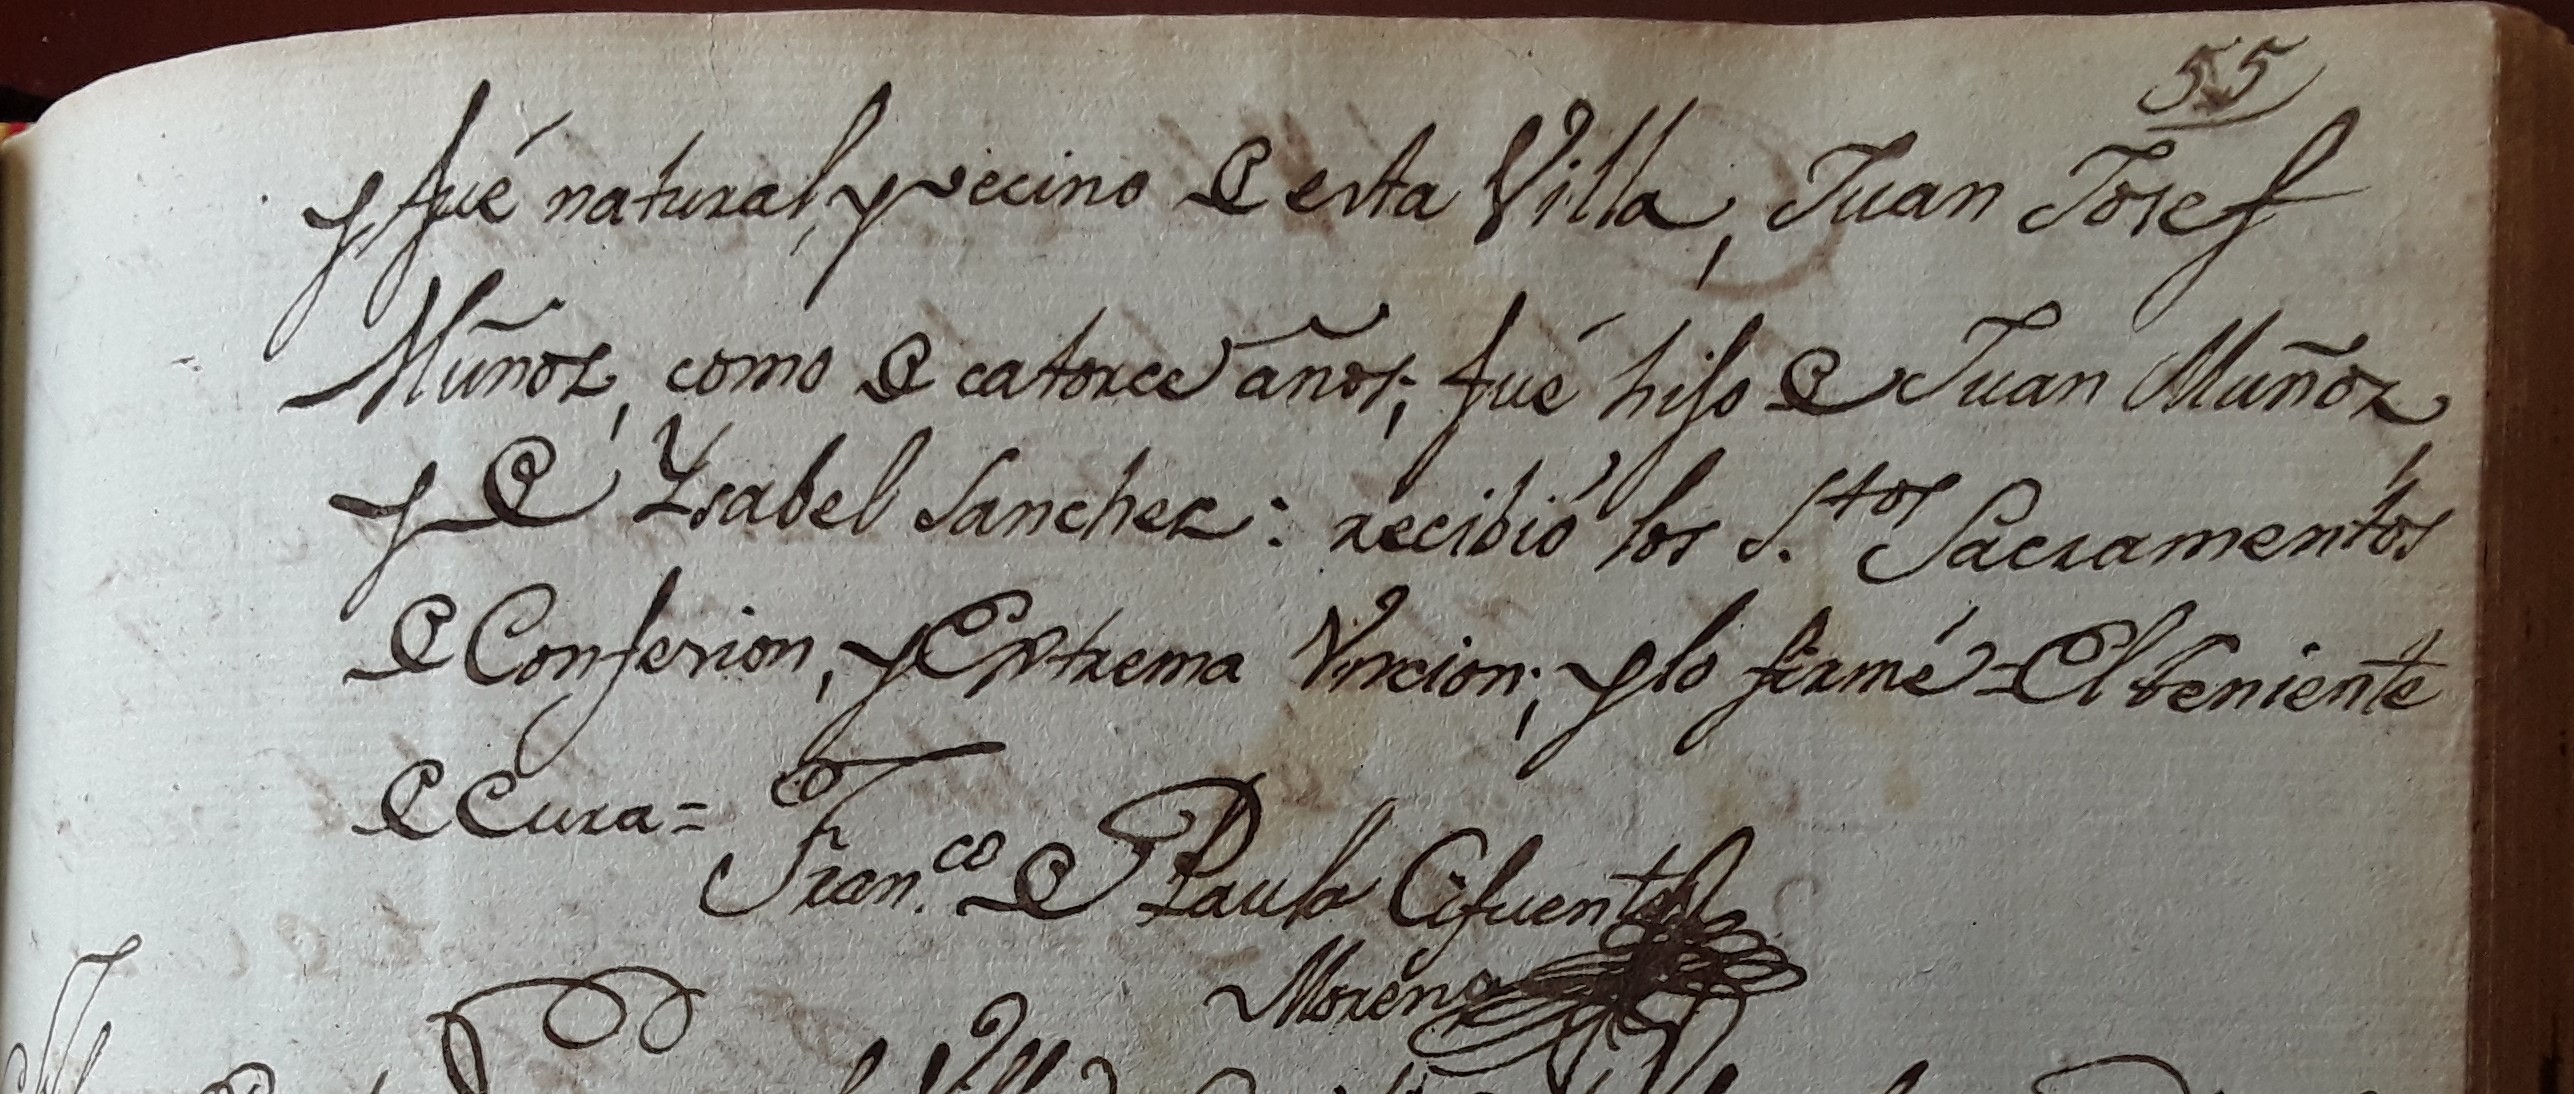 55
y fué natural, y vecino de esta Villa, Juan Josef
Muñoz, como de catorce años; fué hijo de Juan Muñoz,
y de Ysabel Sanchez: recibió los S.tos Sacramentos
de Confesion, y Extrema Vncion; y lo firmé = El teniente
de Cura =
Fran.co de Paula Cifuentes
Moreno